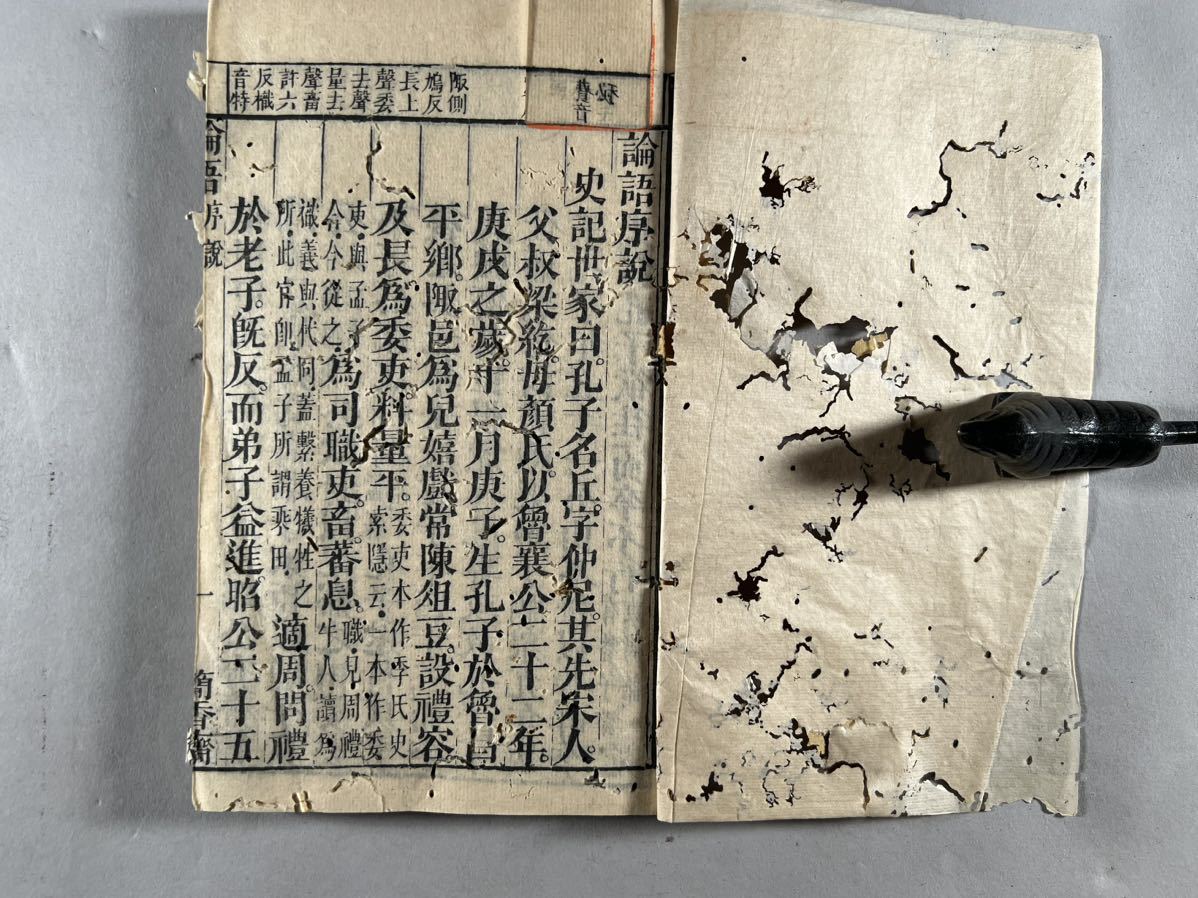 費音
秘
陬側
鳩反
長上
聲委
去聲
量去
聲畜
許六
反樴
音特
論語序說
史記世家曰。孔子名丘。字仲尼。其先宋人。
父叔梁紇。母顏氏。以魯襄公二十二年。
庚戌之歲。十一月庚子。生孔子於魯昌
平鄉。陬邑。爲兒嬉戲。常陳俎豆。設禮容。
及長。爲委吏。料量平。委吏本作季氏史索隱云一本作委
吏與孟子合今從之爲司職吏。畜蕃息。職見周禮牛人讀爲
樴義與杙同蓋繫養犧牲之所此官卽孟子所謂乘田適周。問禮
於老子。旣反。而弟子益進。昭公二十五
論語 序說 一 簡香齋